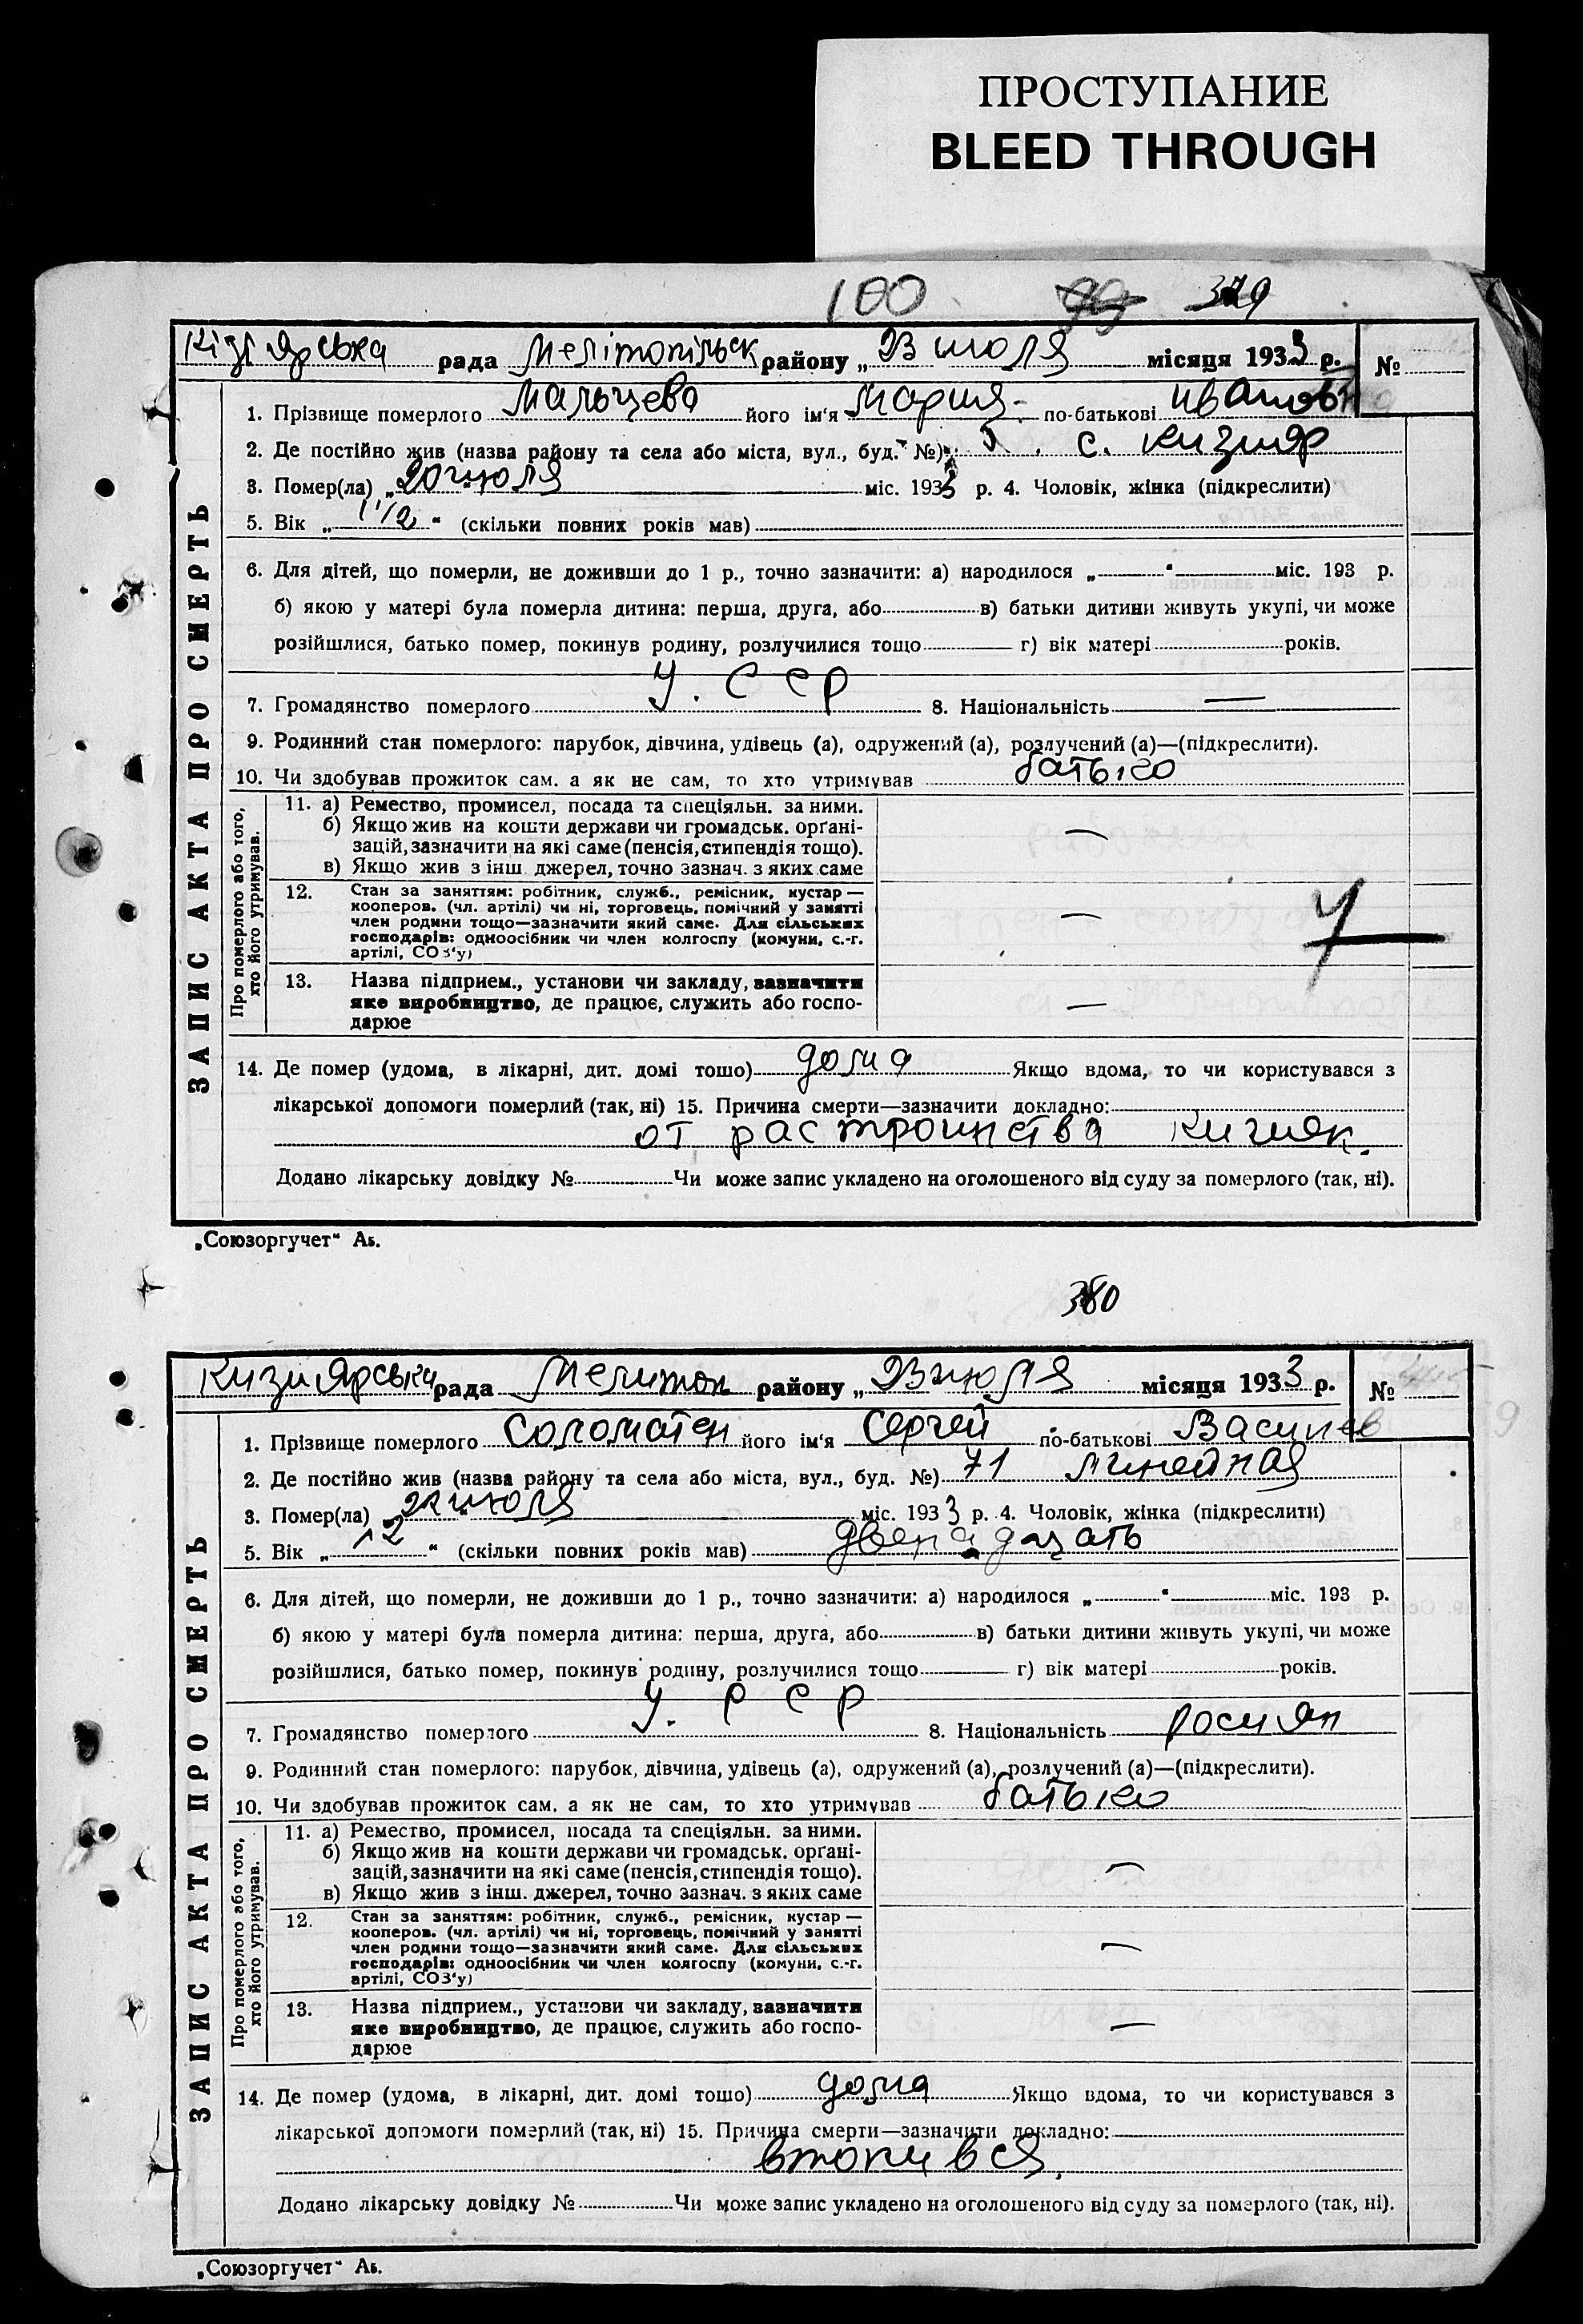 ПРОСТУПАНИЕ
BLEED THROUGH
100 99 379
Кізі Ярська рада Мелітопільськ району „23 июля місяця 1933 р. №
1. Прізвище померлого Мальцева його ім'я Мария по-батькові Ивановна
2. Де постійно жив (назва району та села або міста, вул., буд. №) с. Кизияр
3. Помер(ла) „20" июля міс. 1933 р. 4. Чоловік, жінка (підкреслити)
5. Вік „1 1/2" (скільки повних років мав)
6. Для дітей, що померли, не доживши до 1 р., точно зазначити: а) народилося „ " міс. 193 р.
б) якою у матері була померла дитина: перша, друга, або в) батьки дитини живуть укупі, чи може
розійшлися, батько помер, покинув родину, розлучилися тощо г) вік матері років.
7. Громадянство померлого У. ССР 8. Національність —
9. Родинний стан померлого: парубок, дівчина, удівець (а), одружений (а), розлучений (а)—(підкреслити).
10. Чи здобував прожиток сам. а як не сам, то хто утримував батько
ЗАПИС АКТА ПРО СМЕРТЬ
Про померлого або того, хто його утримував.
11. а) Ремество, промисел, посада та спеціяльн. за ними.
б) Якщо жив на кошти держави чи громадськ. орґані-
зацій, зазначити на які саме (пенсія, стипендія тощо).
в) Якщо жив з інш. джерел, точно зазнач. з яких саме
—
12. Стан за заняттям: робітник, служб., ремісник, кустар—
кооперов. (чл. артілі) чи ні, торговець, помічний у занятті
член родини тощо—зазначити який саме. Для сільських
господарів: одноосібник чи член колгоспу (комуни, с.-г.
артілі, СОЗ'у)
—
13. Назва підприєм., установи чи закладу, зазначити
яке виробництво, де працює, служить або госпо-
дарює
—
14. Де помер (удома, в лікарні, дит. домі тощо) дома Якщо вдома, то чи користувався з
лікарської допомоги померлий (так, ні) 15. Причина смерти—зазначити докладно:
от растроинства кишек.
Додано лікарську довідку № Чи може запис укладено на оголошеного від суду за померлого (так, ні).
„Союзоргучет" Аь.
380
Кизи Ярська рада Мелитоп району „23 июля місяця 1933 р. №
1. Прізвище померлого Соломатен його ім'я Сергей по-батькові Василев
2. Де постійно жив (назва району та села або міста, вул., буд. №) 71 Линейная
3. Помер(ла) „22" июля міс. 1933 р. 4. Чоловік, жінка (підкреслити)
5. Вік „12" (скільки повних років мав) двенадцать
6. Для дітей, що померли, не доживши до 1 р., точно зазначити: а) народилося „ " міс. 193 р.
б) якою у матері була померла дитина: перша, друга, або в) батьки дитини живуть укупі, чи може
розійшлися, батько помер, покинув родину, розлучилися тощо г) вік матері років.
7. Громадянство померлого У. РСР 8. Національність росиян
9. Родинний стан померлого: парубок, дівчина, удівець (а), одружений (а), розлучений (а)—(підкреслити).
10. Чи здобував прожиток сам. а як не сам, то хто утримував батько
ЗАПИС АКТА ПРО СМЕРТЬ
Про померлого або того, хто його утримував.
11. а) Ремество, промисел, посада та спеціяльн. за ними.
б) Якщо жив на кошти держави чи громадськ. орґані-
зацій, зазначити на які саме (пенсія, стипендія тощо).
в) Якщо жив з інш. джерел, точно зазнач. з яких саме
—
12. Стан за заняттям: робітник, служб., ремісник, кустар—
кооперов. (чл. артілі) чи ні, торговець, помічний у занятті
член родини тощо—зазначити який саме. Для сільських
господарів: одноосібник чи член колгоспу (комуни, с.-г.
артілі, СОЗ'у)
—
13. Назва підприєм., установи чи закладу, зазначити
яке виробництво, де працює, служить або госпо-
дарює
—
14. Де помер (удома, в лікарні, дит. домі тощо) дома Якщо вдома, то чи користувався з
лікарської допомоги померлий (так, ні) 15. Причина смерти—зазначити докладно:
втопився.
Додано лікарську довідку № Чи може запис укладено на оголошеного від суду за померлого (так, ні).
„Союзоргучет" Аь.